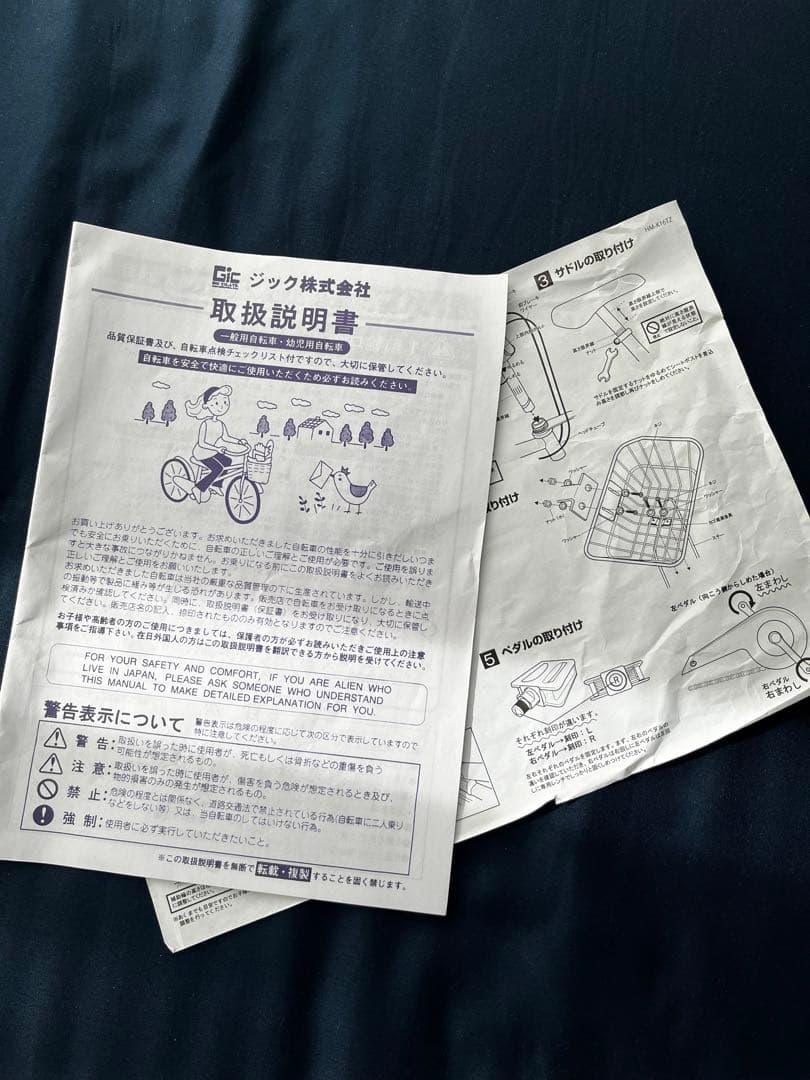 Gic
ジック株式会社
取扱説明書
一般用自転車・幼児用自転車
品質保証書及び、自転車点検チェックリスト付ですので、大切に保管してください。
自転車を安全で快適にご使用いただくため必ずお読みください。
お買い上げありがとうございます。お求めいただきました自転車の性能を十分に引きだしいつま
でも安全にお乗りいただくために、自転車の正しいご理解とご使用が必要です。ご使用を誤りま
すと大きな事故につながりかねません。お乗りになる前にこの取扱説明書をよくお読みいただき
正しいご理解とご使用をお願いいたします。
お求めいただきました自転車は当社の厳重な品質管理の下に生産されています。しかし、輸送中
の振動等で製品に緩み等が生じる恐れがあります。販売店で自転車をお受け取りになるときに点
検済みか確認してください。同時に、取扱説明書（保証書）をお受け取りになり、大切に保管し
てください。販売店名の記入、捺印されたもののみ有効となりますのでご注意ください。
お子様や高齢者の方のご使用につきましては、保護者の方が必ずお読みいただきご使用上の注意
事項をご指導下さい。在日外国人の方はこの取扱説明書を翻訳できる方から説明を受けてください。
FOR YOUR SAFETY AND COMFORT, IF YOU ARE ALIEN WHO
LIVE IN JAPAN, PLEASE ASK SOMEONE WHO UNDERSTAND
THIS MANUAL TO MAKE DETAILED EXPLANATION FOR YOU.
警告表示について
警告表示は危険の程度に応じて次の区分で表示していますので
特に注意してください。
警告：取扱いを誤った時に使用者が、死亡もしくは骨折などの重傷を負う
可能性が想定されるもの。
注意：取扱いを誤った時に使用者が、傷害を負う危険が想定されるとき及び、
物的損害のみの発生が想定されるもの。
禁止：危険の程度とは関係なく、道路交通法で禁止されている行為（自転車に二人乗り
などをしない等）又は、当自転車のしてはいけない行為。
強制：使用者に必ず実行していただきたいこと。
※この取扱説明書を無断で転載・複製することを固く禁じます。
HM-K16TZ
3 サドルの取り付け
前ブレーキ
ワイヤー
高さ限界線上側で
高さを設定してください。
高さ限界線
ナット
サドルを固定するナットをゆるめてシートポストを差込
み高さを調整し再びナットをしめてください。
ヘッドチューブ
ネジ
ワッシャー
ネジ
ワッシャー
ナット（小）
ワッシャー
ステー
取り付け
5 ペダルの取り付け
それぞれ刻印が違います。
左ペダル→刻印：L
右ペダル→刻印：R
左ペダル（向こう側からしめた場合）
左まわし
右ペダル
右まわし
R
に調整してください。
調整を行ってください。